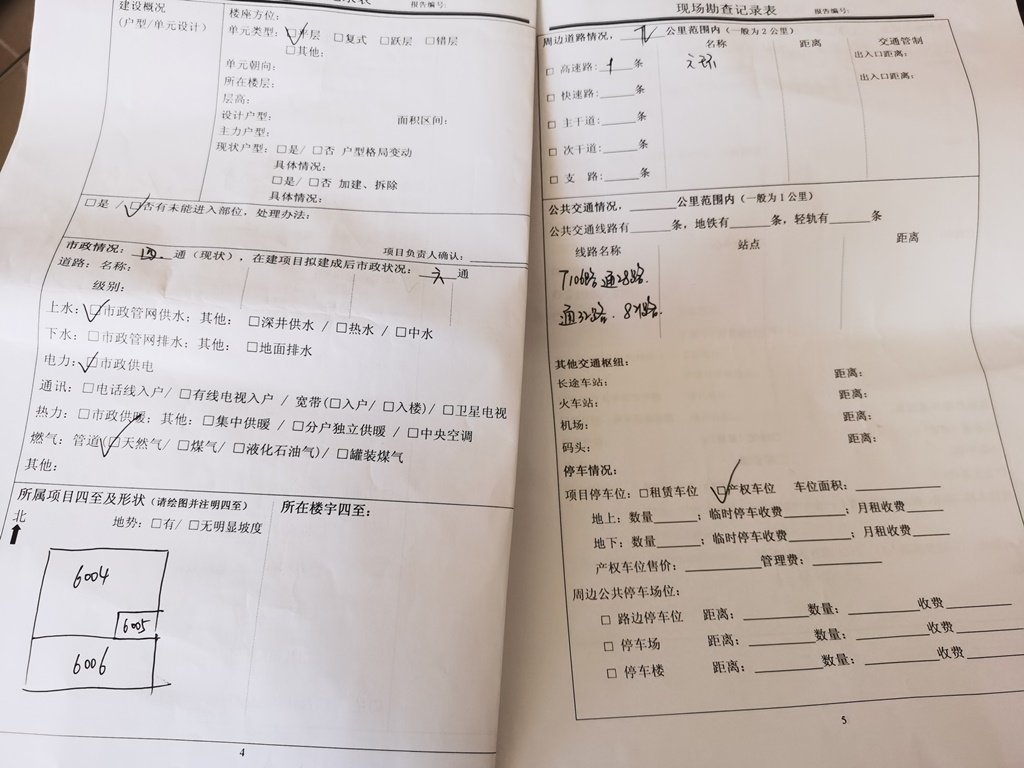 记录表
报告编号:
建设概况
(户型/单元设计)
楼座方位:
单元类型: □平层 □复式 □跃层 □错层
□其他:
单元朝向:
所在楼层:
层高:
设计户型: 面积区间:
主力户型:
现状户型: □是/ □否 户型格局变动
具体情况:
□是/ □否 加建、拆除
具体情况:
□是 / □否有未能进入部位，处理办法:
项目负责人确认:
市政情况: 四 通（现状），在建项目拟建成后市政状况: 六 通
道路: 名称:
级别:
上水: □市政管网供水; 其他: □深井供水 / □热水 / □中水
下水: □市政管网排水; 其他: □地面排水
电力: □市政供电
通讯: □电话线入户/ □有线电视入户 / 宽带(□入户/ □入楼)/ □卫星电视
热力: □市政供暖; 其他: □集中供暖 / □分户独立供暖 / □中央空调
燃气: 管道(□天然气/ □煤气/ □液化石油气)/ □罐装煤气
其他:
所属项目四至及形状 (请绘图并注明四至)
北 地势: □有/ □无明显坡度
所在楼宇四至:
6004
6005
6006
4
现场勘查记录表 报告编号:
周边道路情况，公里范围内（一般为2公里）
名称 距离 交通管制
□ 高速路: 1 条 六环 出入口距离:
出入口距离:
□ 快速路:____条
□ 主干道:____条
□ 次干道:____条
□ 支 路:____条
公共交通情况，______公里范围内（一般为1公里）
公共交通线路有_____条，地铁有_____条，轻轨有_____条
线路名称 站点 距离
T106路 通28路.
通32路.
其他交通枢纽:
长途车站: 距离:
火车站: 距离:
机场: 距离:
码头: 距离:
停车情况:
项目停车位: □租赁车位 □产权车位 车位面积: __________
地上: 数量_____; 临时停车收费_______; 月租收费____
地下: 数量_____; 临时停车收费_______; 月租收费____
产权车位售价: _________ 管理费: ________
周边公共停车场位:
□ 路边停车位 距离: ________数量: ________收费_______
□ 停车场 距离: ________数量: ________收费_______
□ 停车楼 距离: ________数量: ________收费_______
5